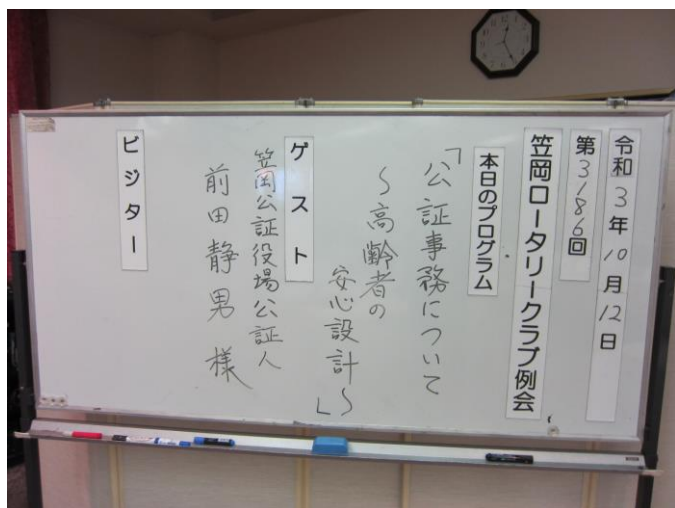 令和3年10月12日
第3186回
笠岡ロータリークラブ例会
本日のプログラム
「公証事務について
～高齢者の
安心設計～」
ゲスト
笠岡公証役場公証人
前田静男 様
ビジター